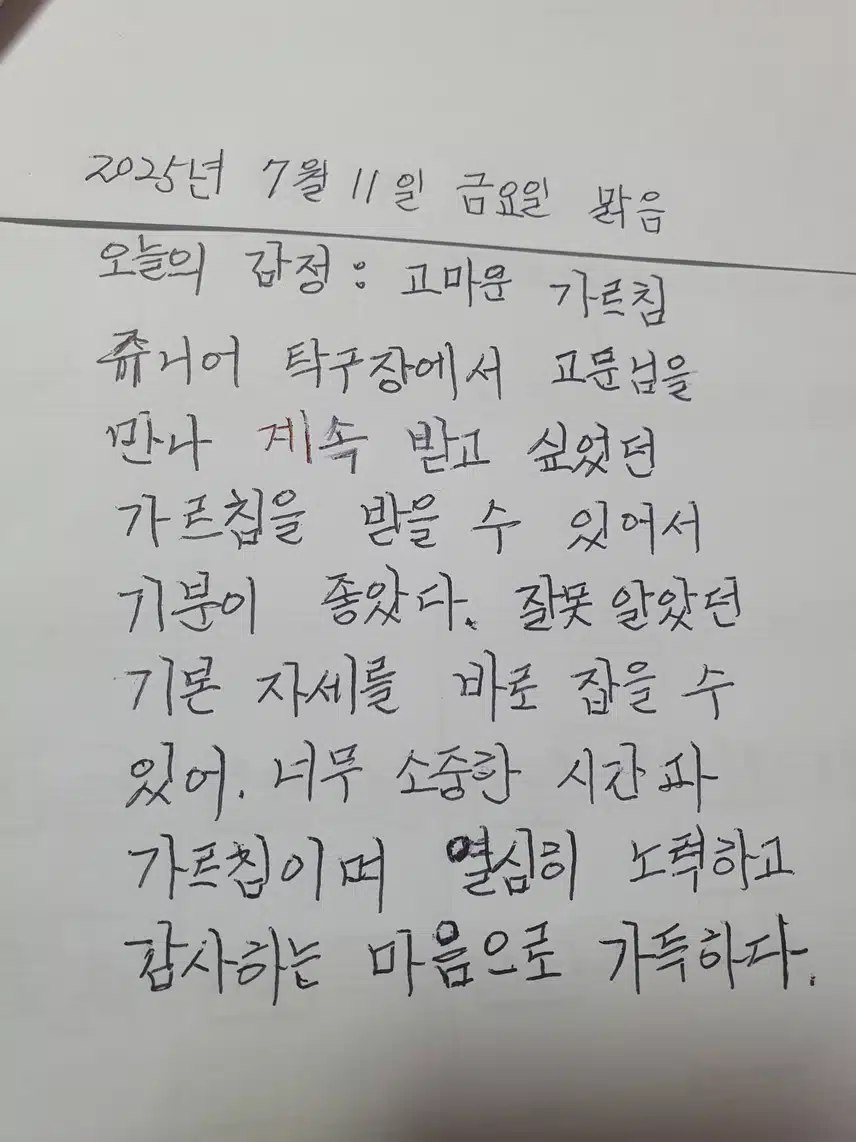 2025년 7월 11일 금요일 맑음
오늘의 감정 : 고마운 가르침
쥬니어 탁구장에서 고문님을
만나 계속 받고 싶었던
가르침을 받을 수 있어서
기분이 좋았다. 잘못 알았던
기본 자세를 바로 잡을 수
있어. 너무 소중한 시간과
가르침이며 열심히 노력하고
감사하는 마음으로 가득하다.